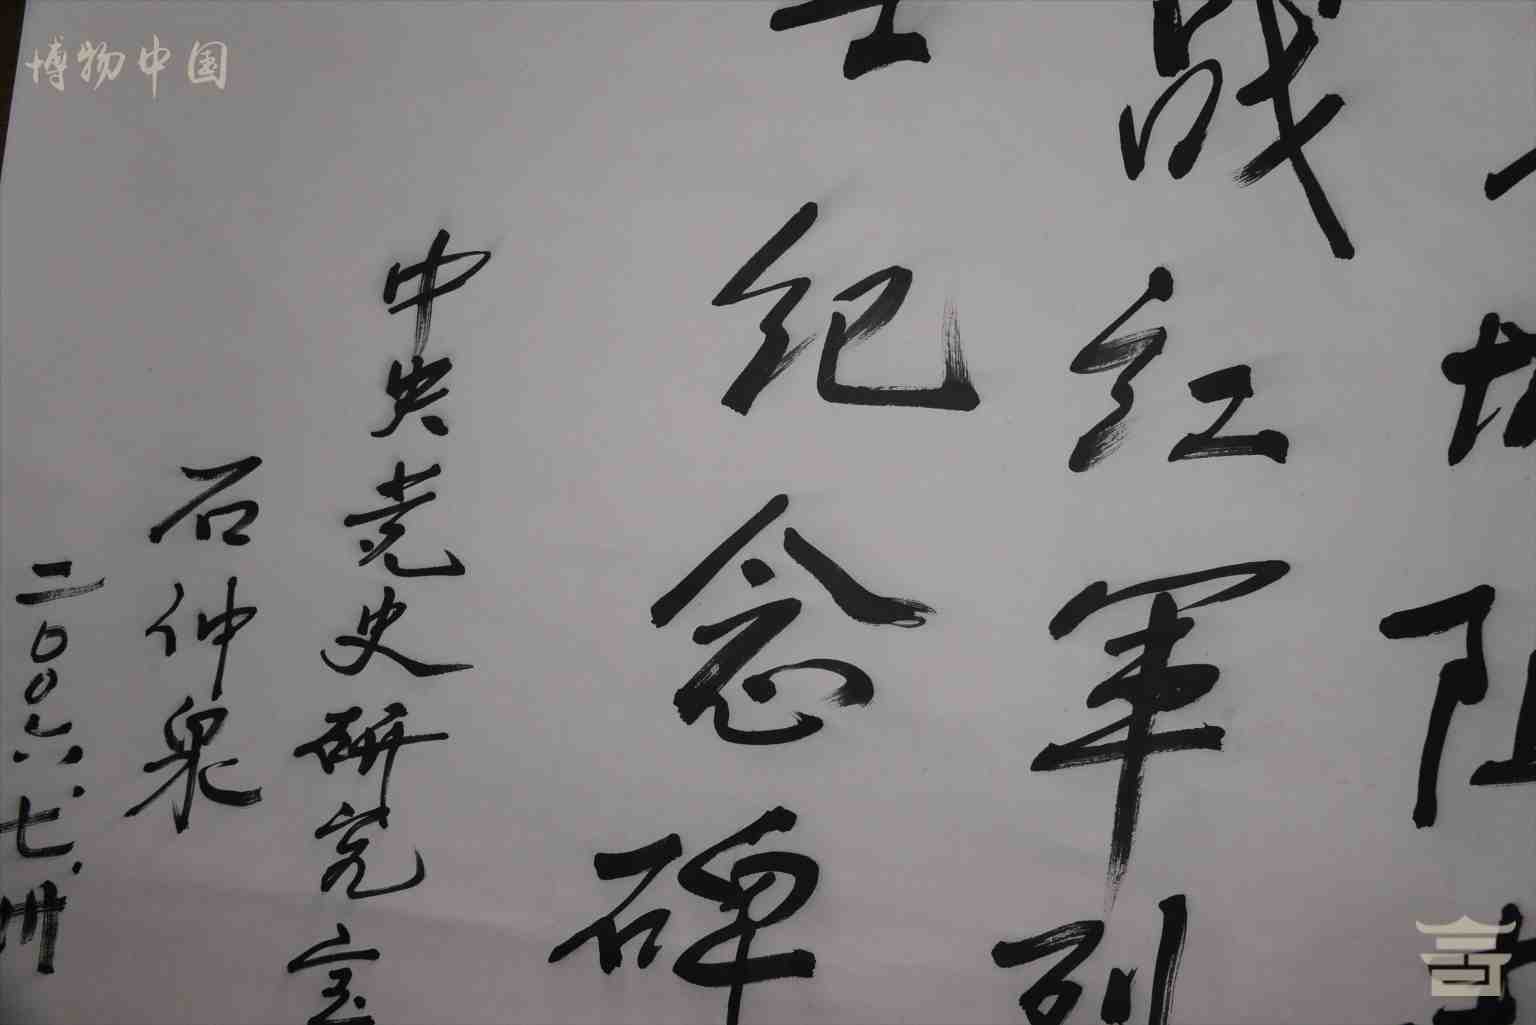 博物中国
阻
战红军烈
士纪念碑
中央党史研究室
石仲泉
二〇〇六.七.卅